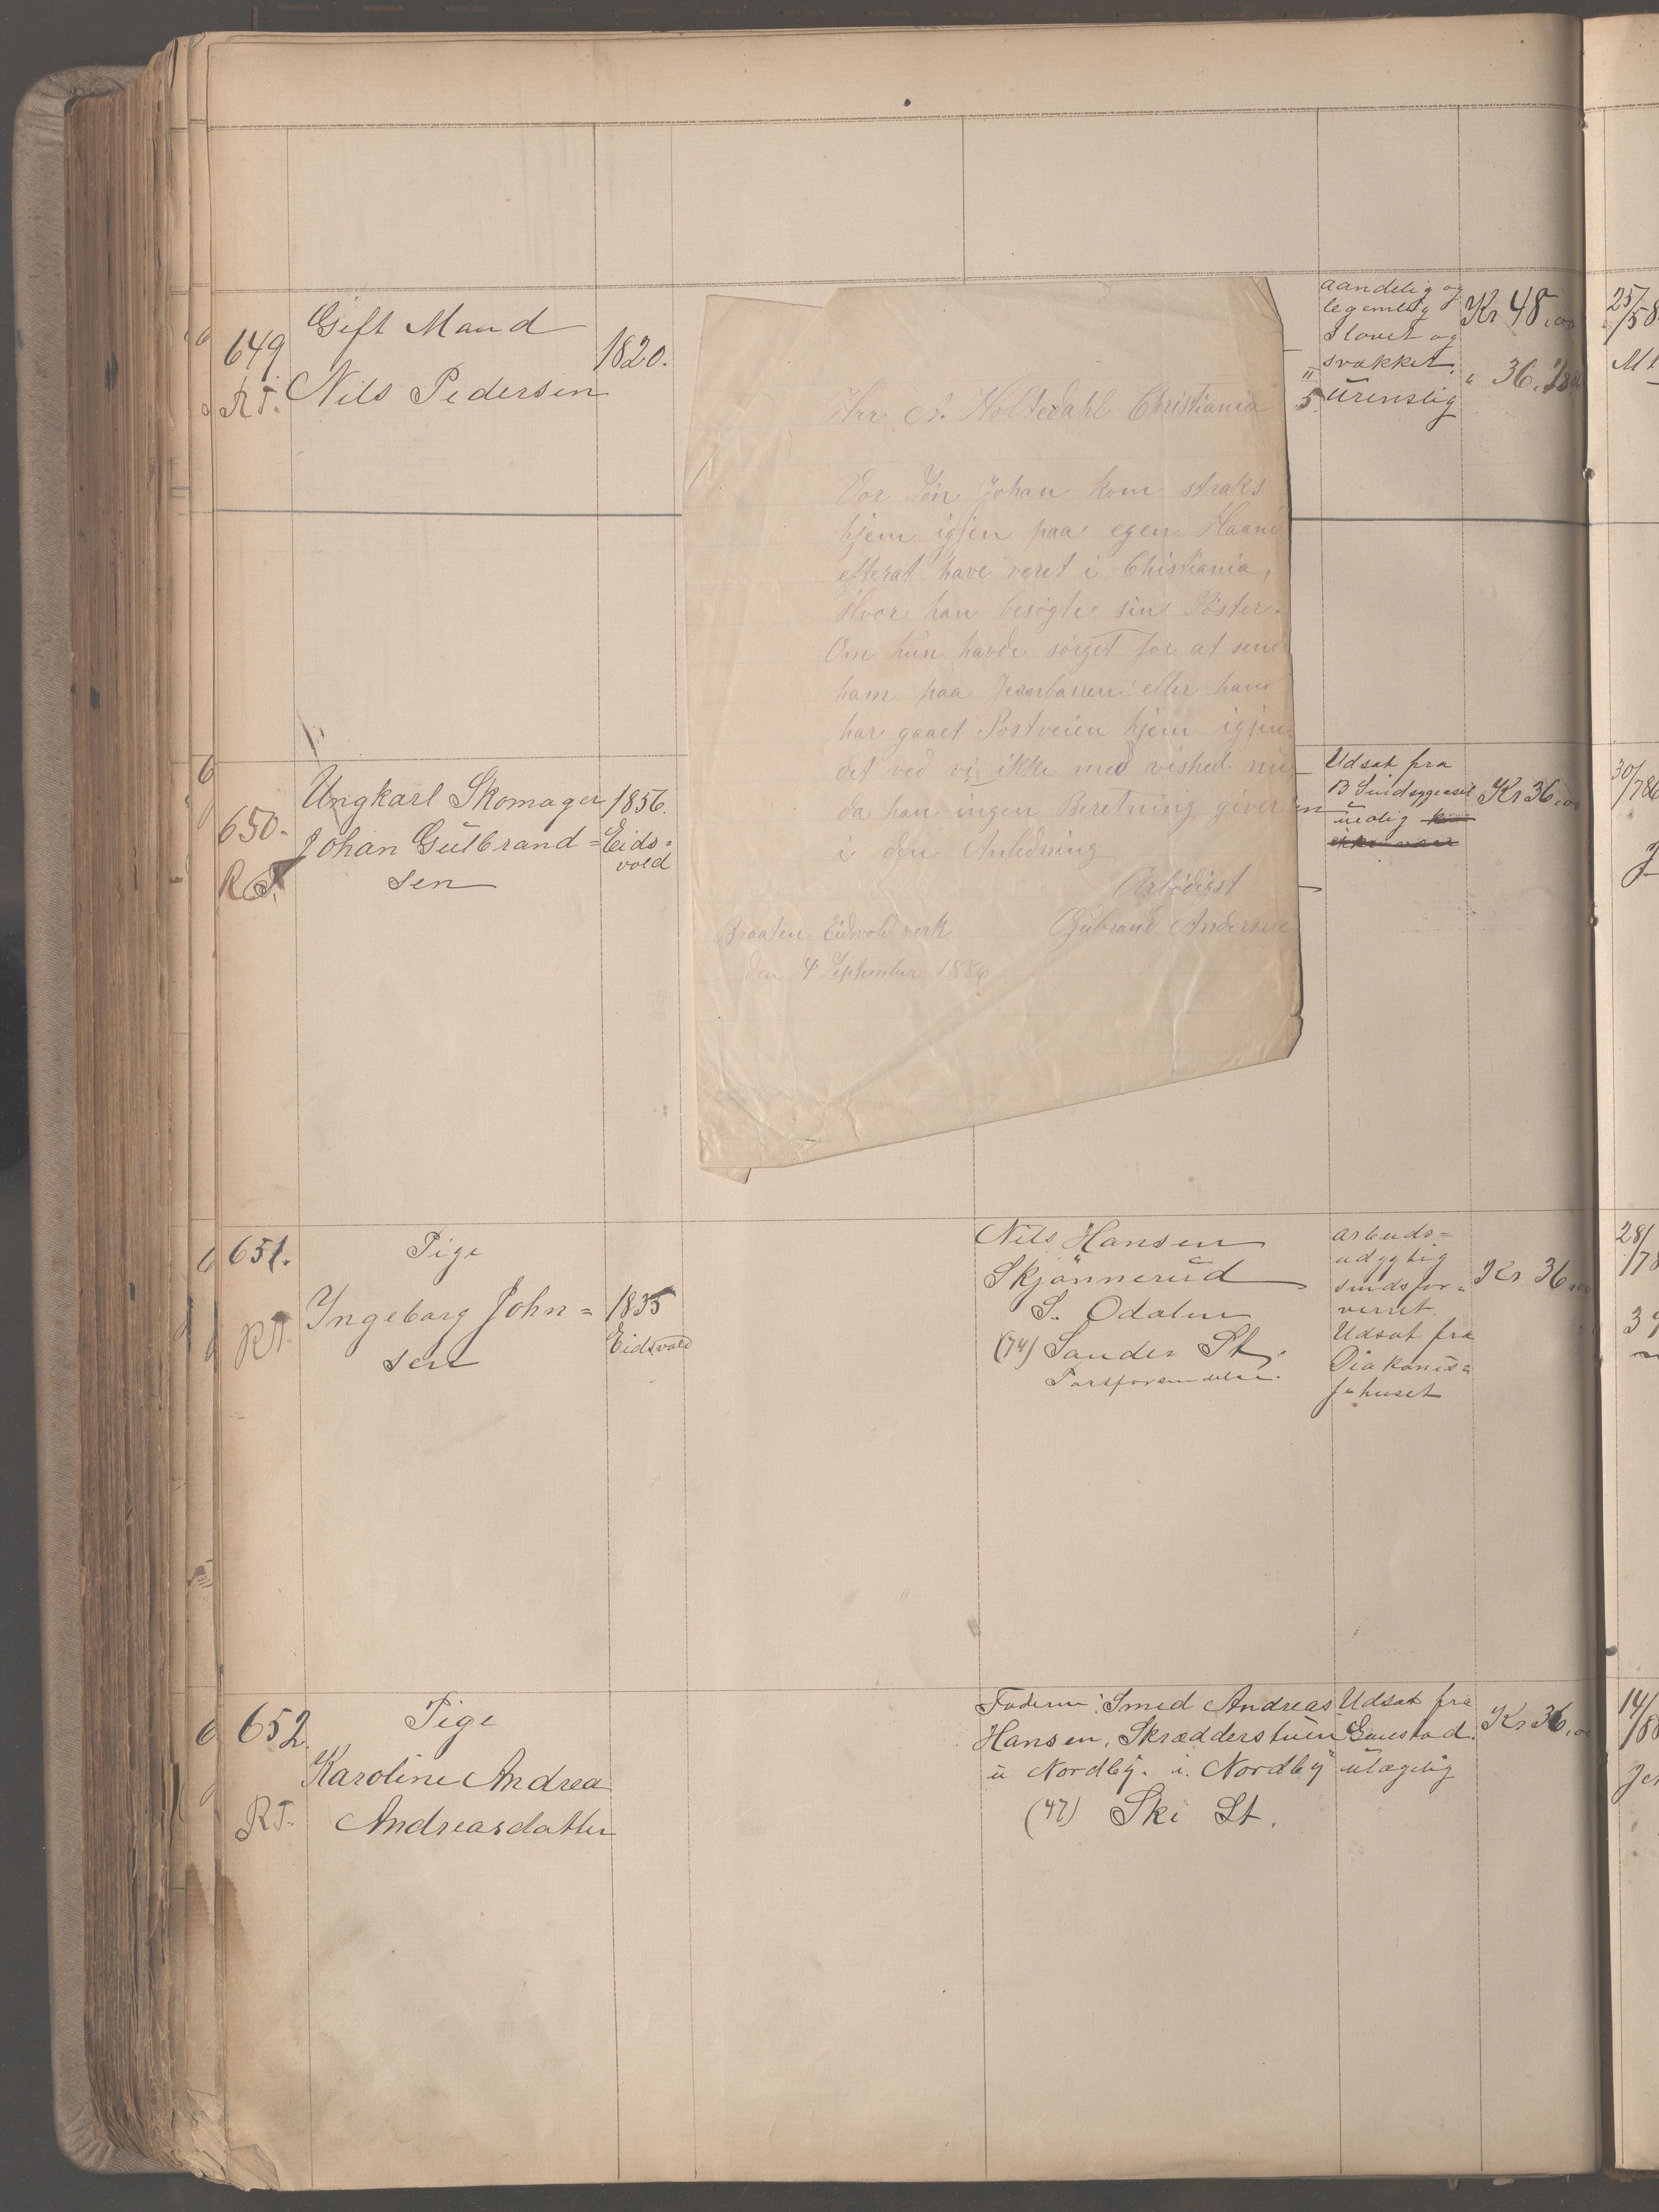 649
R.T.
Gift Mand
Nils Pedersen
1820.
aandelig og
legemlig
sløvet og
svækket.
urenslig
Kr 48,00
" 36.
25/58
Hrr A. Holtedahl Christiania
Vor Søn Johan kom straks
hjem igjen paa egen Haand
efterat have veret i Christiania,
Hvor han besøgte sin Søster.
Om hun havde sørget for at send
ham paa Jernbanen eller han
har gaaet Postveien hjem igjen
det ved vi ikke med vished nu
da han ingen Beretning giver
i den Anledning
Ærbödigst
Gulbrand Andersen
Braaten Eidsvold verk
den 4 September 1886
650.
R.T.
Ungkarl Skomager
Johan Gulbrand=
sen
1856.
Eids=
vold
Udsat fra
B Sindsygeasil
urolig
Kr 36,00
30/786
651.
R.T.
Pige
Ingeborg John=
sen
1835
Eidsvold
Nils Hansen
Skjønnerud
S. Odalen
(74) Sander St.
arbeids=
udygtig
sindsfor=
virret.
Udsat fra
Diakonis=
sehuset
Kr 36,00
28/78
652.
R.T.
Pige
Karoline Andrea
Andreasdatter
Faderen: Smed Andreas
Hansen, Skrædderstuen
u Nordby. i. Nordby
(47) Ski St.
Udsat fra
Gaustad.
ulægelig
Kr 36,00
14/88